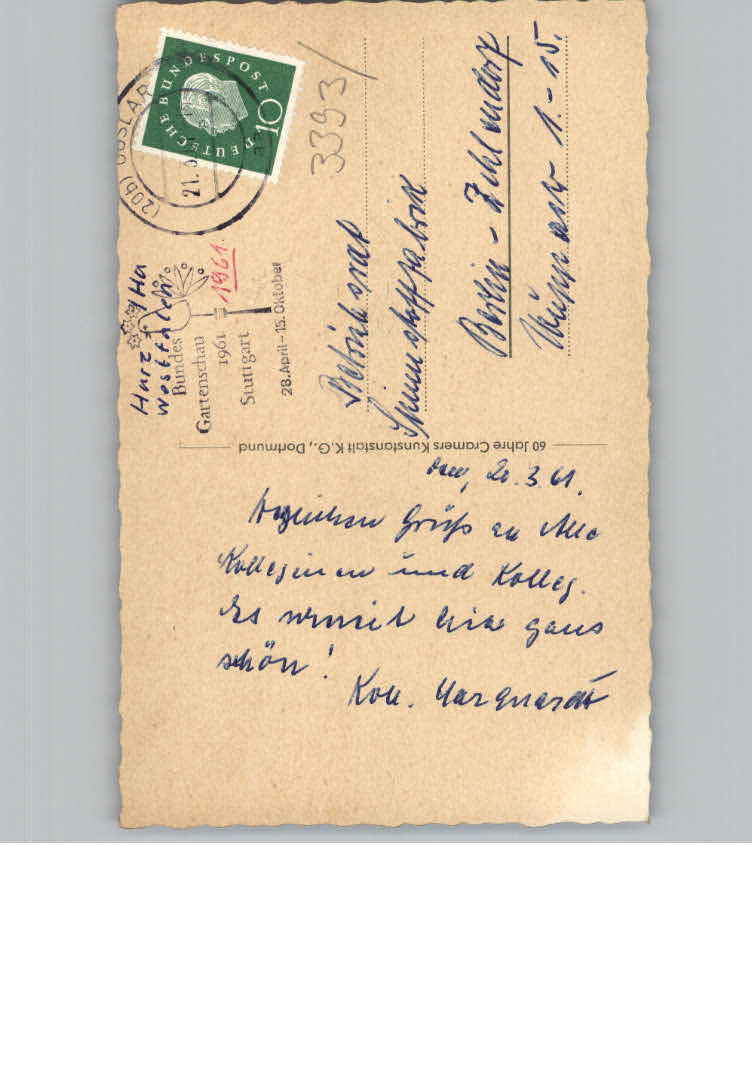 DEUTSCHE BUNDESPOST
10
(20b) GOSLAR
21.
3393/
Harz / Ha
Westfalen
1961.
Bundes
Gartenschau
1961
Stuttgart
28. April - 15. Oktober
Betriebsrat
Spinnstofffabrik
Berlin - Zehlendorf
1. - 15.
60 Jahre Cramers Kunstanstalt K.G., Dortmund
den, 20.3.61.
Grüß an Alle
Kolleginen und Kolleg.
Es hier ganz
schön!
Koll. Marquardt